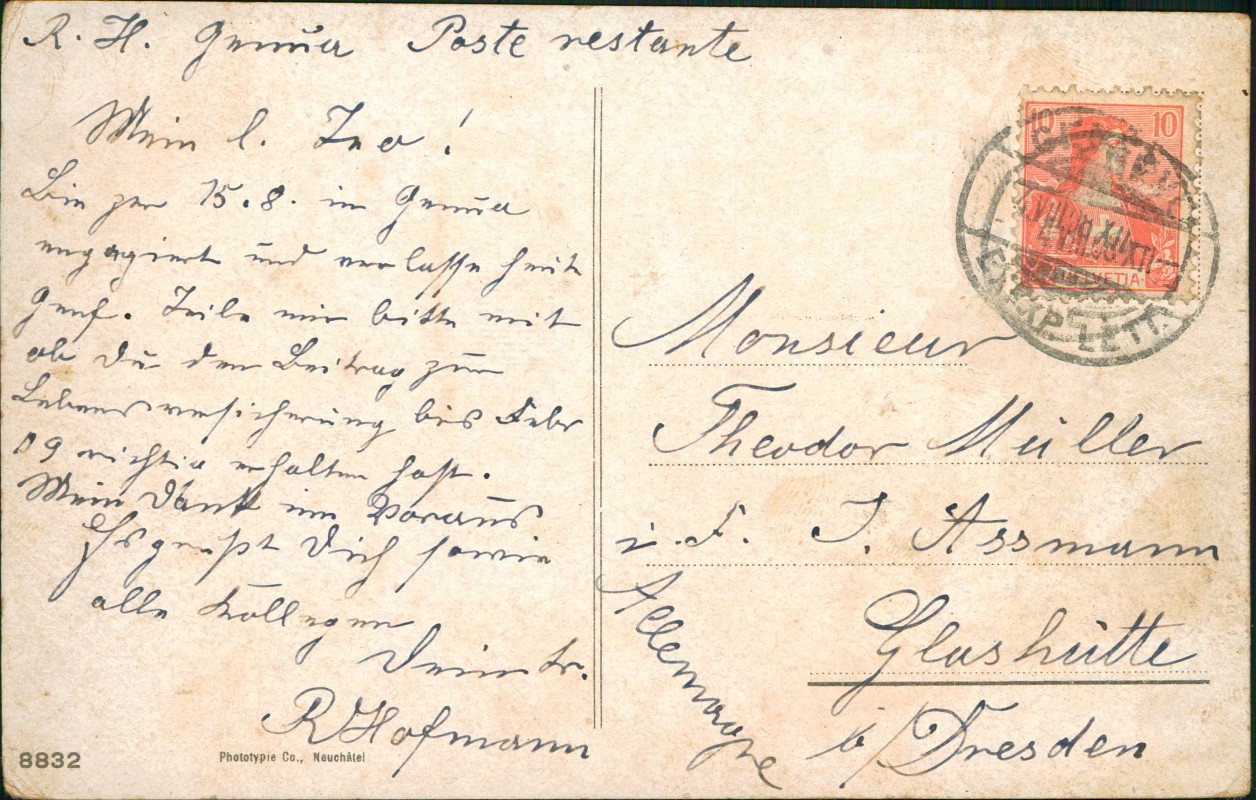 R. H. Genua Poste restante
Mein l. Teo!
Bin per 15.8. in Genua
engagiert und verlasse heute
Genf. Teile mir bitte mit
ob Du den Beitrag zur
Lebensversicherung bis Febr
09 richtig erhalten hast.
Mein Dank im Voraus
Es grüßt Dich sowie
alle Kollegen
Dein tr.
R Hofmann
8832
Phototypie Co., Neuchâtel
10 10
HELVETIA
EXP. LETT.
Monsieur
Theodor Müller
i. F. J. Assmann
Glashütte
b/Dresden
Allemagne